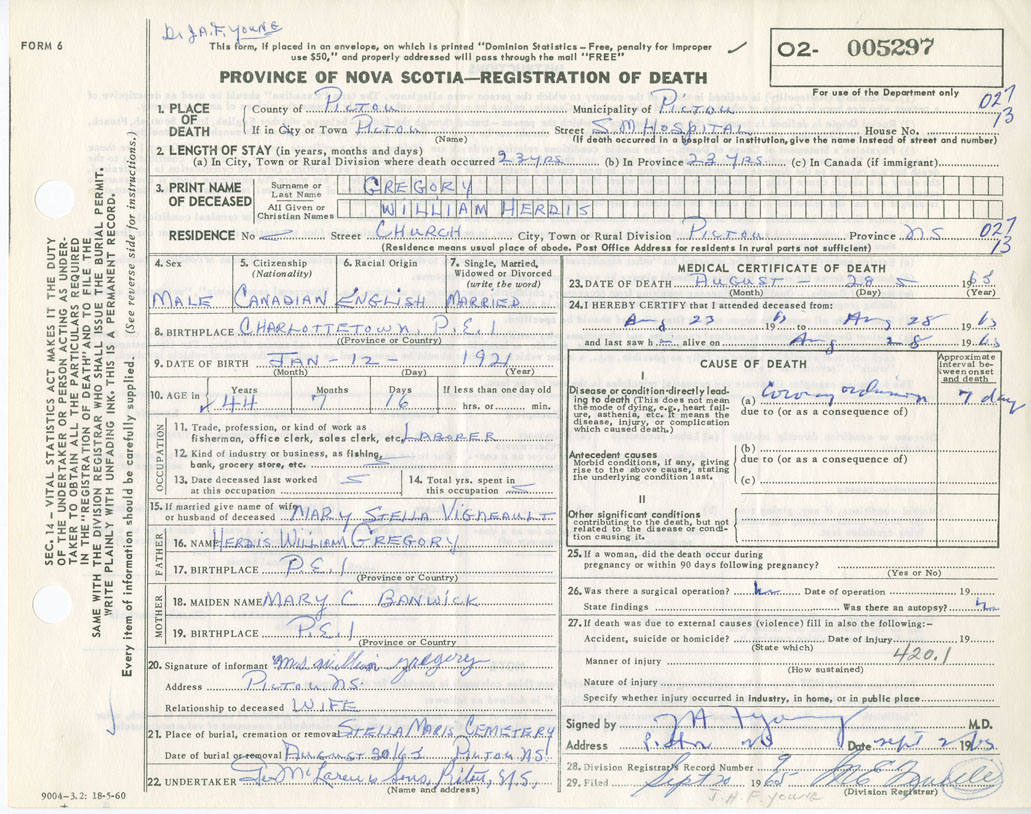 Dr JA.F. YOUNG
FORM 6
This form, if placed in an envelope, on which is printed "Dominion Statistics – Free, penalty for improper
use $50," and properly addressed will pass through the mail "FREE"
O2- 005297
PROVINCE OF NOVA SCOTIA—REGISTRATION OF DEATH
For use of the Department only
1. PLACE OF DEATH
County of PICTOU Municipality of PICTOU 027
If in City or Town PICTOU Street S M HOSPITAL House No. 13
(Name) (If death occurred in a hospital or institution, give the name instead of street and number)
2. LENGTH OF STAY (in years, months and days)
(a) In City, Town or Rural Division where death occurred 23 YRS (b) In Province 23 YRS (c) In Canada (if immigrant)
3. PRINT NAME OF DECEASED
Surname or Last Name GREGORY
All Given or Christian Names WILLIAM HERDIS
RESIDENCE No Street CHURCH City, Town or Rural Division PICTOU Province NS 027
(Residence means usual place of abode. Post Office Address for residents in rural parts not sufficient) 13
4. Sex
MALE
5. Citizenship
(Nationality)
CANADIAN
6. Racial Origin
ENGLISH
7. Single, Married, Widowed or Divorced
(write the word)
MARRIED
8. BIRTHPLACE CHARLOTTETOWN, P.E.I
(Province or Country)
9. DATE OF BIRTH JAN - 12 - 1921
(Month) (Day) (Year)
10. AGE in
Years Months Days If less than one day old
44 7 16 hrs. or min.
OCCUPATION
11. Trade, profession, or kind of work as
fisherman, office clerk, sales clerk, etc. LABORER
12. Kind of industry or business, as fishing,
bank, grocery store, etc.
13. Date deceased last worked
at this occupation
14. Total yrs. spent in
this occupation
15. If married give name of wife
or husband of deceased MARY STELLA VIGNEAULT
FATHER
16. NAME HERDIS WILLIAM GREGORY
17. BIRTHPLACE P.E.I
(Province or Country)
MOTHER
18. MAIDEN NAME MARY C BANWICK
19. BIRTHPLACE P.E.I
(Province or Country
20. Signature of informant Mrs William Gregory
Address PICTOU NS.
Relationship to deceased WIFE
21. Place of burial, cremation or removal STELLA MARIS CEMETERY
Date of burial or removal AUGUST 30/65 PICTOU NS.
22. UNDERTAKER McLaren & Sons, Pictou, N.S.
(Name and address)
9004-3.2: 18-5-60
MEDICAL CERTIFICATE OF DEATH
23. DATE OF DEATH AUGUST - 28 1965
(Month) (Day) (Year)
24. I HEREBY CERTIFY that I attended deceased from:
Aug 23 1965 to Aug 28 1965
and last saw h m alive on Aug 28 1965
CAUSE OF DEATH
Approximate interval between onset and death
I
Disease or condition directly leading
to death (This does not mean
the mode of dying, e.g., heart failure,
asthenia, etc. It means the
disease, injury, or complication
which caused death.)
(a) Coronary occlusion 7 days
due to (or as a consequence of)
Antecedent causes
Morbid conditions, if any, giving
rise to the above cause, stating
the underlying condition last.
(b)
due to (or as a consequence of)
(c)
II
Other significant conditions
contributing to the death, but not
related to the disease or condition
causing it.
25. If a woman, did the death occur during
pregnancy or within 90 days following pregnancy?
(Yes or No)
26. Was there a surgical operation? no Date of operation 19
State findings Was there an autopsy? no
27. If death was due to external causes (violence) fill in also the following:–
Accident, suicide or homicide? Date of injury 19
(State which)
420.1
Manner of injury
(How sustained)
Nature of injury
Specify whether injury occurred in industry, in home, or in public place
Signed by JA F Young M.D.
Address Pictou NS Date Sept 2 1965
28. Division Registrar's Record Number 9
29. Filed Sept 20 1965
(Division Registrar)
J.A.F. YOUNG
SEC. 14 – VITAL STATISTICS ACT MAKES IT THE DUTY
OF THE UNDERTAKER OR PERSON ACTING AS UNDER-
TAKER TO OBTAIN ALL THE PARTICULARS REQUIRED
IN THE "REGISTRATION OF DEATH" AND TO FILE THE
SAME WITH THE DIVISION REGISTRAR WHO SHALL ISSUE THE BURIAL PERMIT.
WRITE PLAINLY WITH UNFADING INK, THIS IS A PERMANENT RECORD.
Every item of information should be carefully supplied. (See reverse side for instructions.)